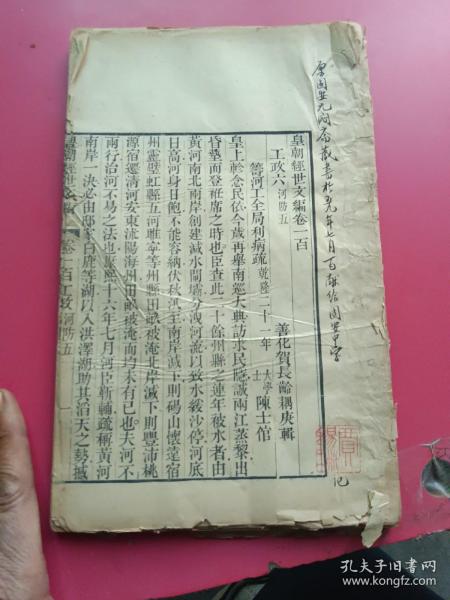 皇朝經世文編卷一百
工政六河防五
善化賀長齡耦庚輯
籌河工全局利病疏乾隆二十一年
大學士陳士倌
皇上軫念民依今歲再舉南巡大典訪求民隱誠兩江蒸黎出
昏墊而登袵席之時也臣查此二十餘州縣之連年被水者由
黃河南北兩岸創建減水閘壩分洩河流以致水緩沙停河底
日高河身日飽不能容納伏秋汛至南岸減下則碭山懷遠宿
州靈壁虹縣五河睢寧等州縣田畝被淹北岸減下則豐沛桃
源宿遷清河安東沭陽海州田畝被淹而均未有已也夫河不
兩行治河不易之法也康熙十六年七月河臣靳輔疏稱黃河
南岸一決必由邸家白鹿等湖以入洪澤湖助其滔天之勢撼
皇朝經世文編
卷一百工政河防五
孔夫子旧书网
www.kongfz.com